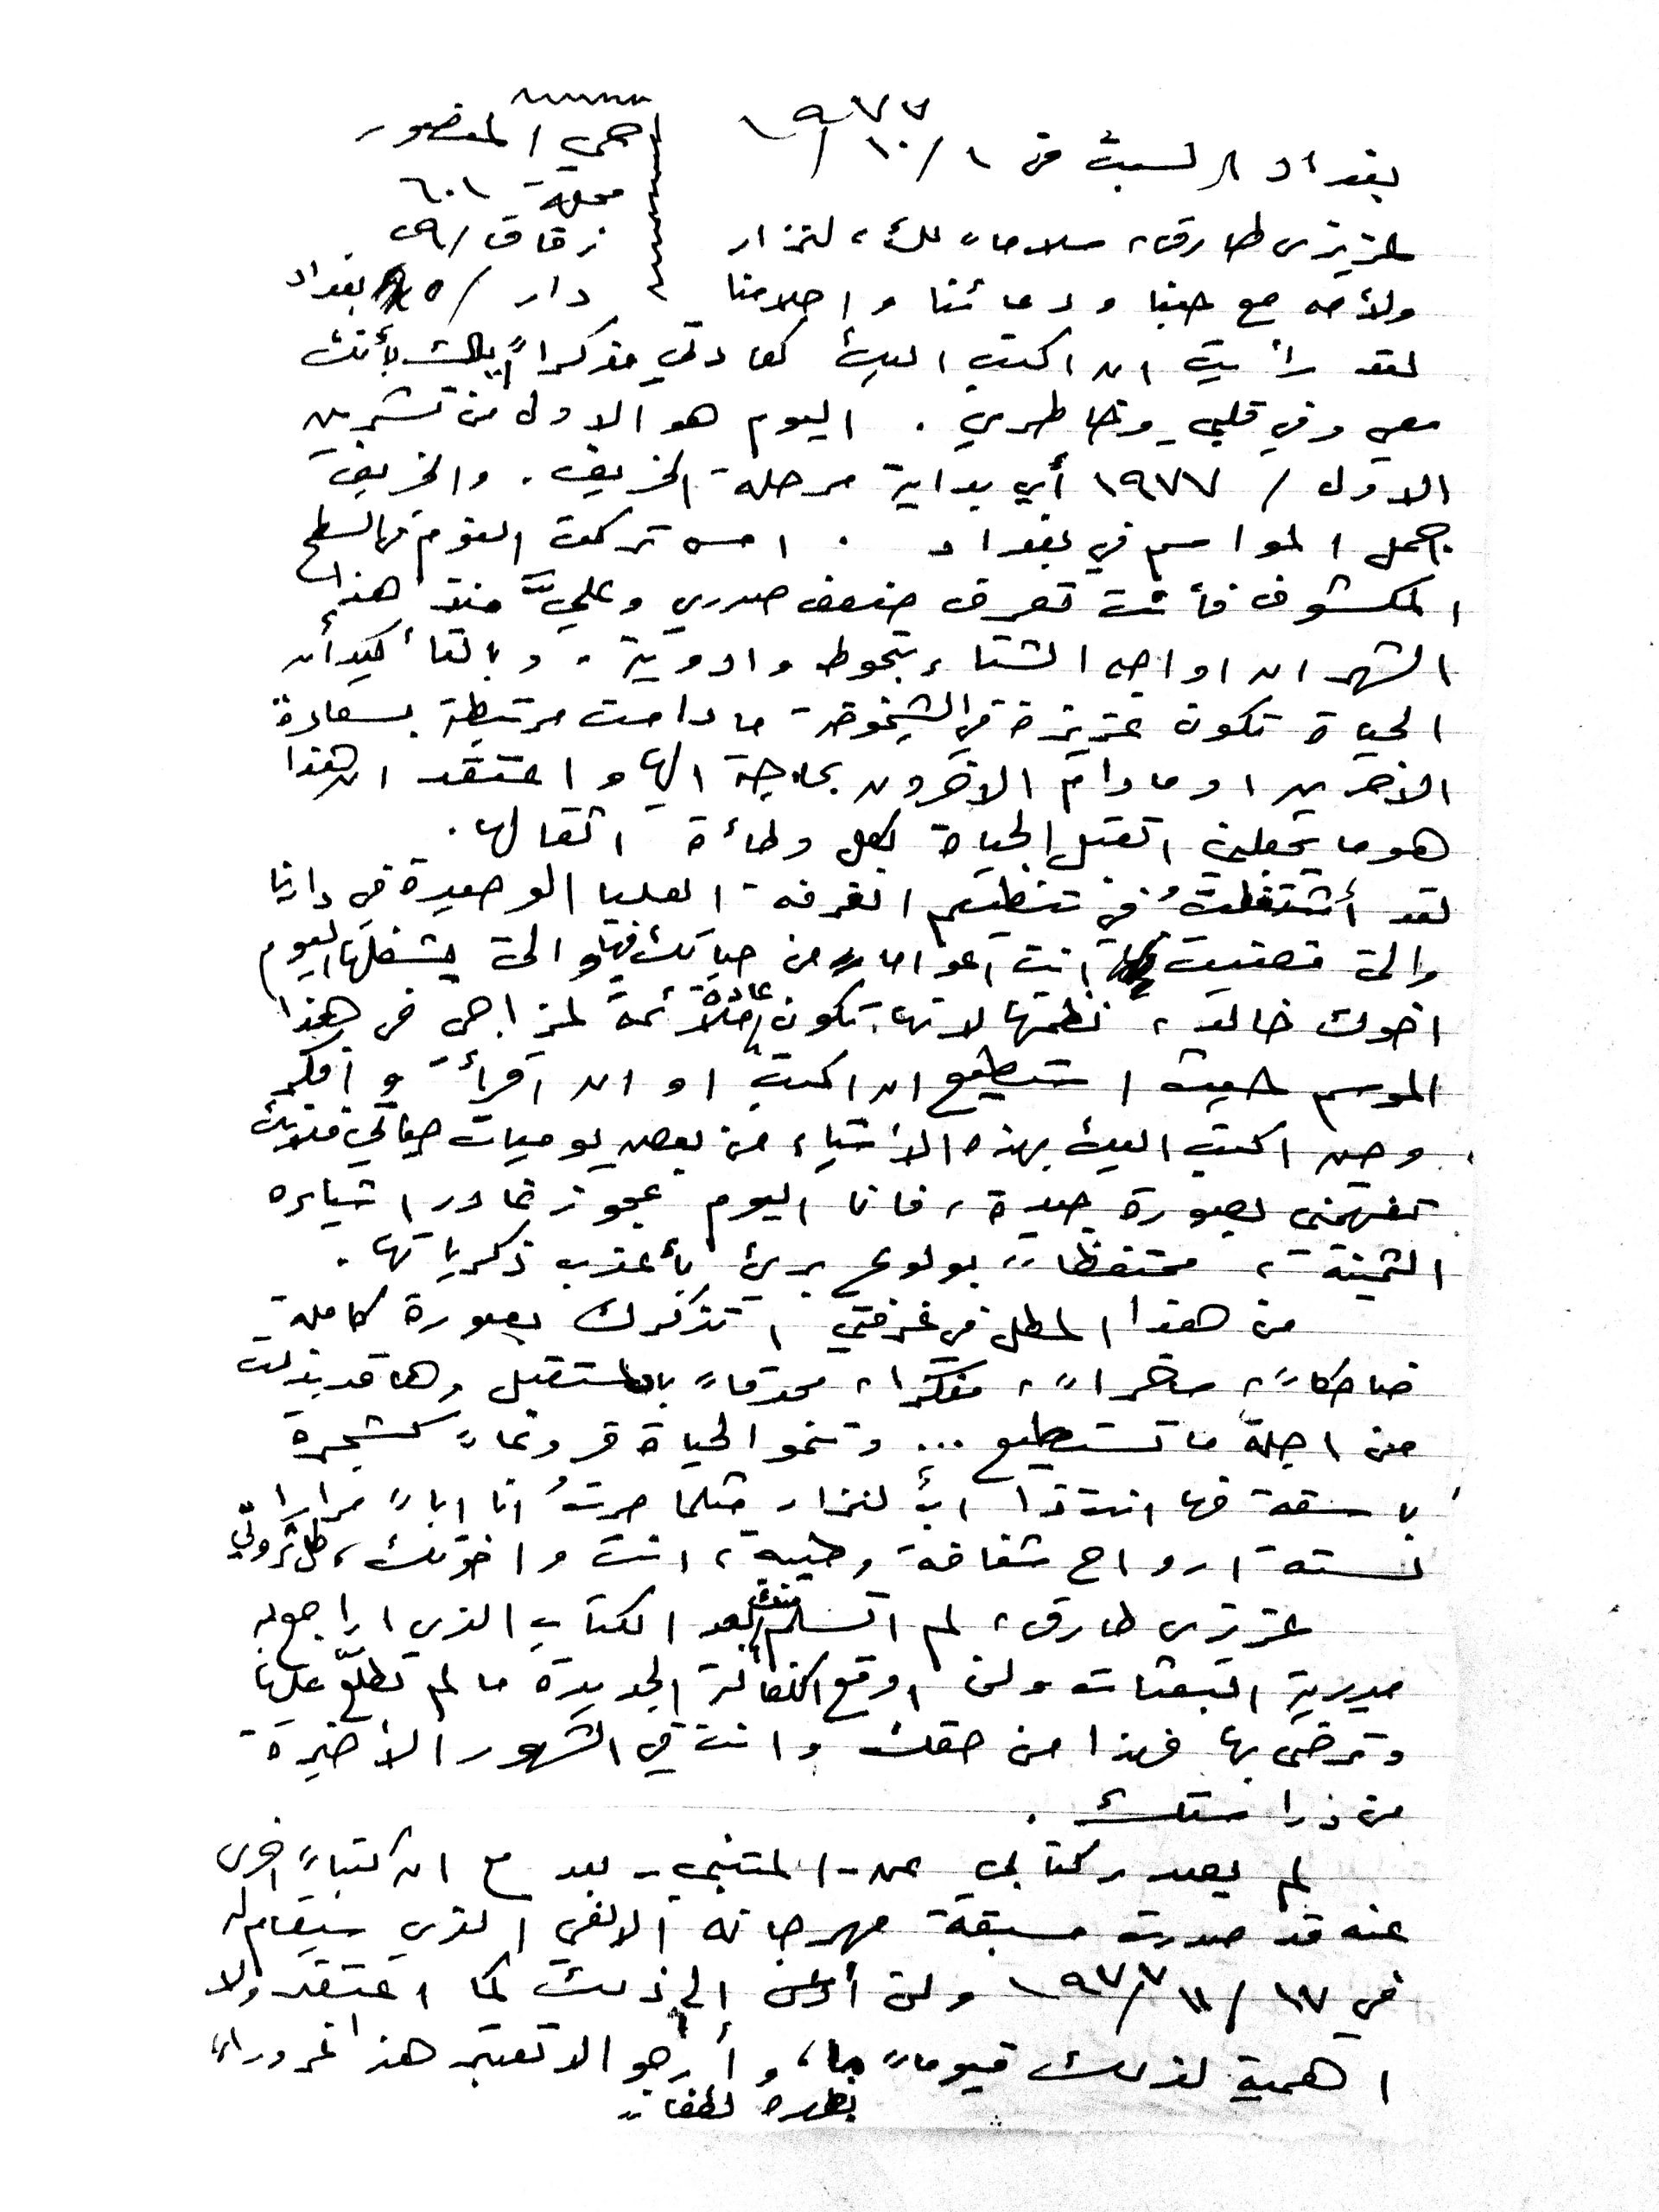 بغداد السبت في ١/١٠/١٩٧٧
حي المنصور
محلة ٦٠١
زقاق/٢٩
دار/٥ بغداد
عزيزي طارق، سلاماً لك، لنزار
ولأمه مع حبنا ودعائنا واحلامنا
لقد رأيت ان اكتب اليك كعادتي مذكراً اياك بأنك
معي وفي قلبي وخاطري. اليوم هو الاول من تشرين
الاول / ١٩٧٧ أي بداية مرحلة الخريف. والخريف
اجمل المواسم في بغداد. امس تركت النوم في السطح
المكشوف فأنت تعرف ضعف صدري وعليَّ منذ هذا
الشهر ان اواجه الشتاء بتحوط وادوية. وبالتأكيد أن
الحياة تكون عزيزة في الشيخوخة ما دامت مرتبطة بسعادة
الاخرين او ما دام الاخرون بحاجة اليها واعتقد ان هذا
هو ما يجعلني اتقبل الحياة بكل وطأة اثقالها.
لقد أشتغلتُ في تنظيم الغرفة العليا الوحيدة في دارنا
والتي قضيت انت اعواماً من حياتك فيها والتي يشغلها اليوم
اخوك خالد، نظمتها لانها تكون عادة ملائمة لمزاجي في هذا
الموسم حيث استطيع ان اكتب او ان اقرأ و افكر
وحين اكتب اليك بهذه الاشياء من بعض يوميات حياتي فلانك
تفهمني بصورة جيدة، فانا اليوم عجوز غادر اشياءه
الثمينة، محتفظاً بولوع بريء بأعذب ذكرياتها.
من هذا المطل في غرفتي اتذكرك بصورة كاملة
ضاحكاً، ساخراً، مفكرا، محدقاً بالمستقبل وها قد بذلت
من اجله ما تستطيع... وتنمو الحياة فروعاً كشجرة
باسقة فها انت ذا ابٌ لنزار مثلما صرتُ انا اباً مرارا
لستة ارواح شفافة وطيبة، انت واخوتك، كل ثروتي
عزيزي طارق، لم اتسلم منك بعد الكتاب الذي اراجع به
مديرية البعثات ولن اوقع الكفالة الجديدة ما لم تطلّع عليها
وترضى بها فهذا من حقك وانت في الشهور الأخيرة
من دراستك.
لم يصدر كتابي عن - المتنبي - بعد مع ان كتباً اخرى
عنه قد صدرت مسبقة مهرجانه الالفي الذي سيقام له
في ١٧/١١/١٩٧٧ ولن أدعى إلى ذلك كما اعتقد ولا
اهمية لذلك قيوماً ما، وأرجو الا تعتبر هذا غروراً
نظره لطفاً